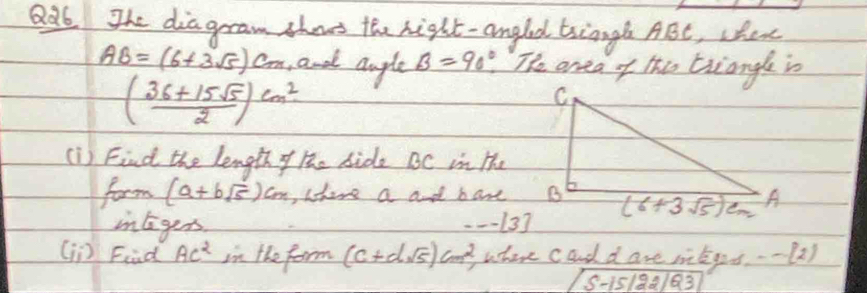 Q26 The diagram shows the right-angled triangle ABC, where
AB = (6+3√5) cm, and angle B = 90°. The area of this triangle is
(36+15√5 / 2) cm².
C
(i) Find the length of the side BC in the
form (a+b√5) cm, where a and b are
B (6+3√5) cm A
integers. ---[3]
(ii) Find AC² in the form (c+d√5) cm², where c and d are integers. --[2]
S-15/22/Q3